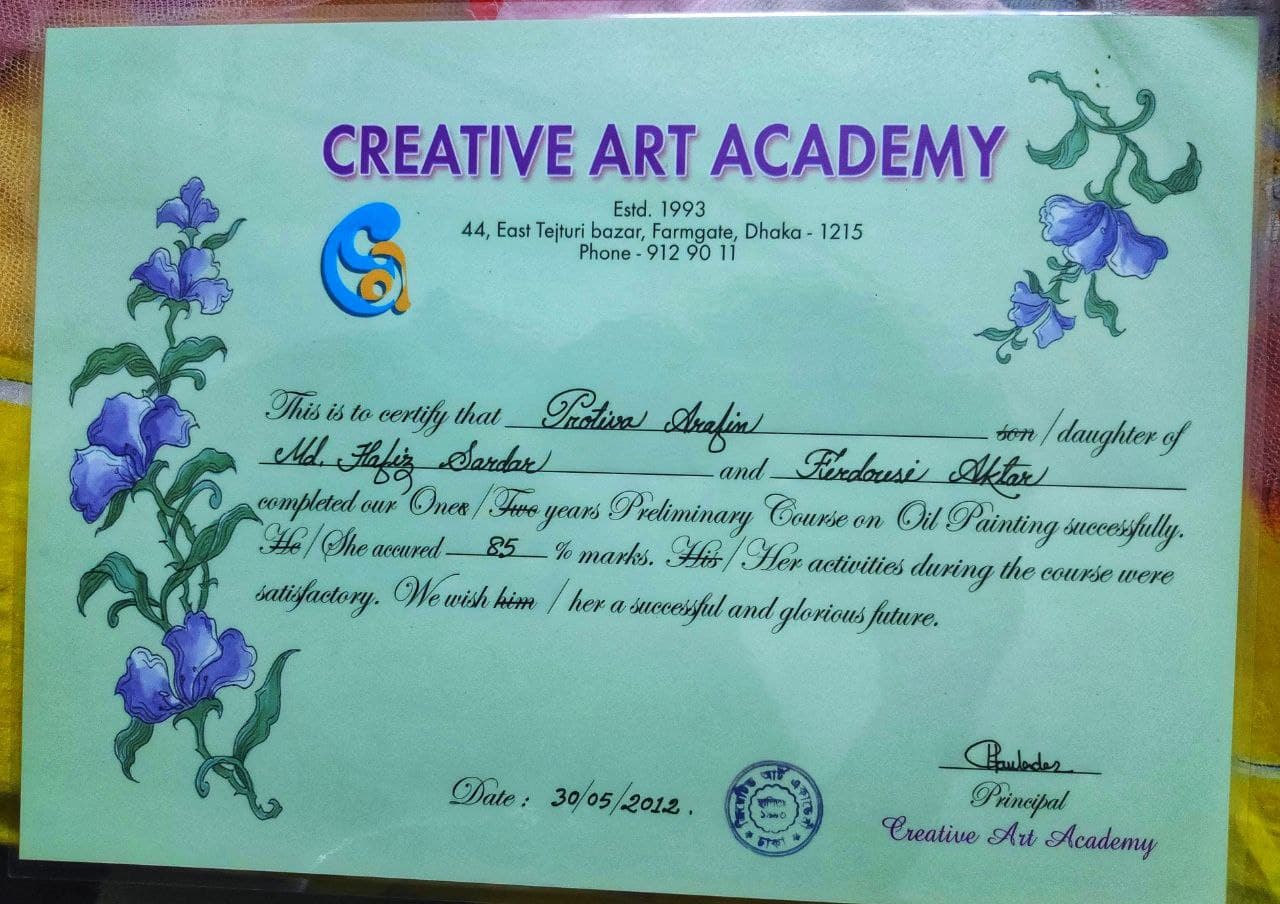 CREATIVE ART ACADEMY
Estd. 1993
44, East Tejturi bazar, Farmgate, Dhaka - 1215
Phone - 912 90 11
This is to certify that Protiva Arafin son / daughter of
Md. Hafiz Sardar and Ferdousi Aktar
completed our One / Two years Preliminary Course on Oil Painting successfully.
He / She accured 85 % marks. His / Her activities during the course were
satisfactory. We wish him / her a successful and glorious future.
Date : 30/05/2012.
ক্রিয়েটিভ আর্ট একাডেমী
স্থাপিত
১৯৯৩
ঢাকা
Principal
Creative Art Academy